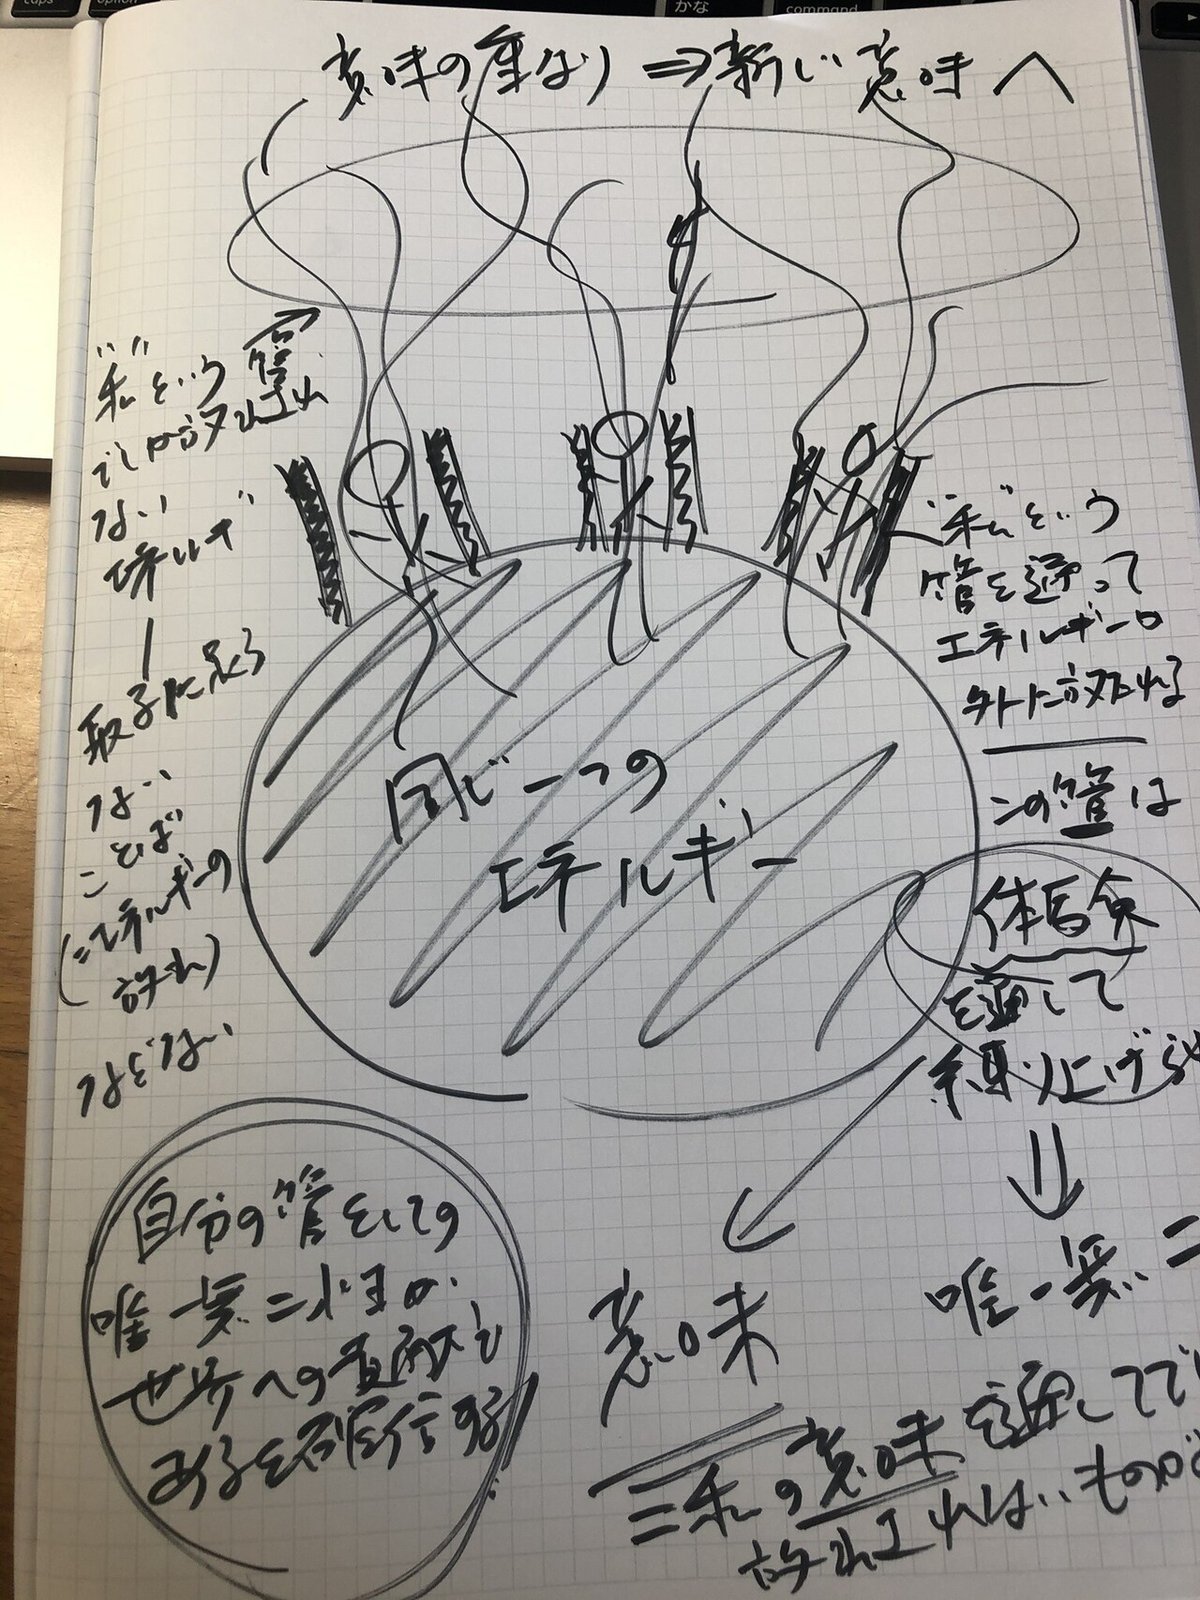 意味の重なり ⇒ 新しい意味へ
"私"という管
でしか放出され
ない
エネルギー
取るに足る
ない
ことば
(=エネルギーの
放出)
などない
"私"という
管を通って
エネルギーは
外に放たれる
この管は
体験
を通して
練り上げられ
同じ一つの
エネルギー
自分の管としての
唯一無二性が
世界への貢献で
あると確信する!
意味
唯一無二
=私の意味を通してでし
放出されないものが
かな
command
option
caps